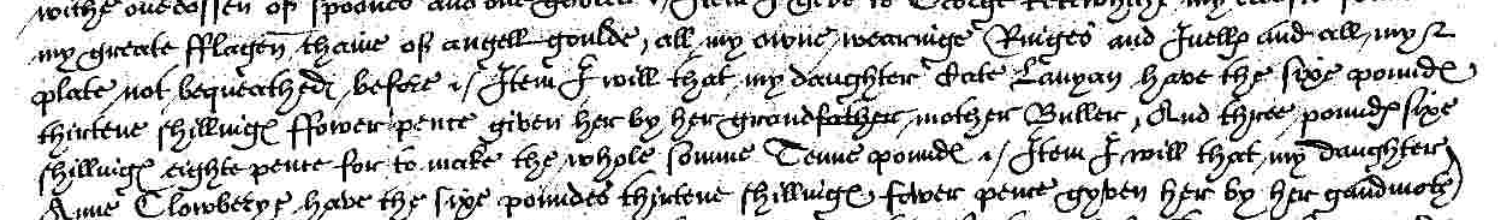 withe one dossen of spoones and one
my greate fflagen chaine of angell goulde, all my owne wearinge Ringes and Juells and all my
plate not bequeathed before ./ Item I will that my daughter Cate Lanyan have the sixe poundes
thirtene shillinges ffower pence given her by her grandfather mother Buller, And three poundes sixe
shillinges eighte pence for to make the whole somme Tenne poundes ./ Item I will that my daughter
Anne Clowberye have the sixe poundes thirtene shillinges fower pence gyven her by her gandmother